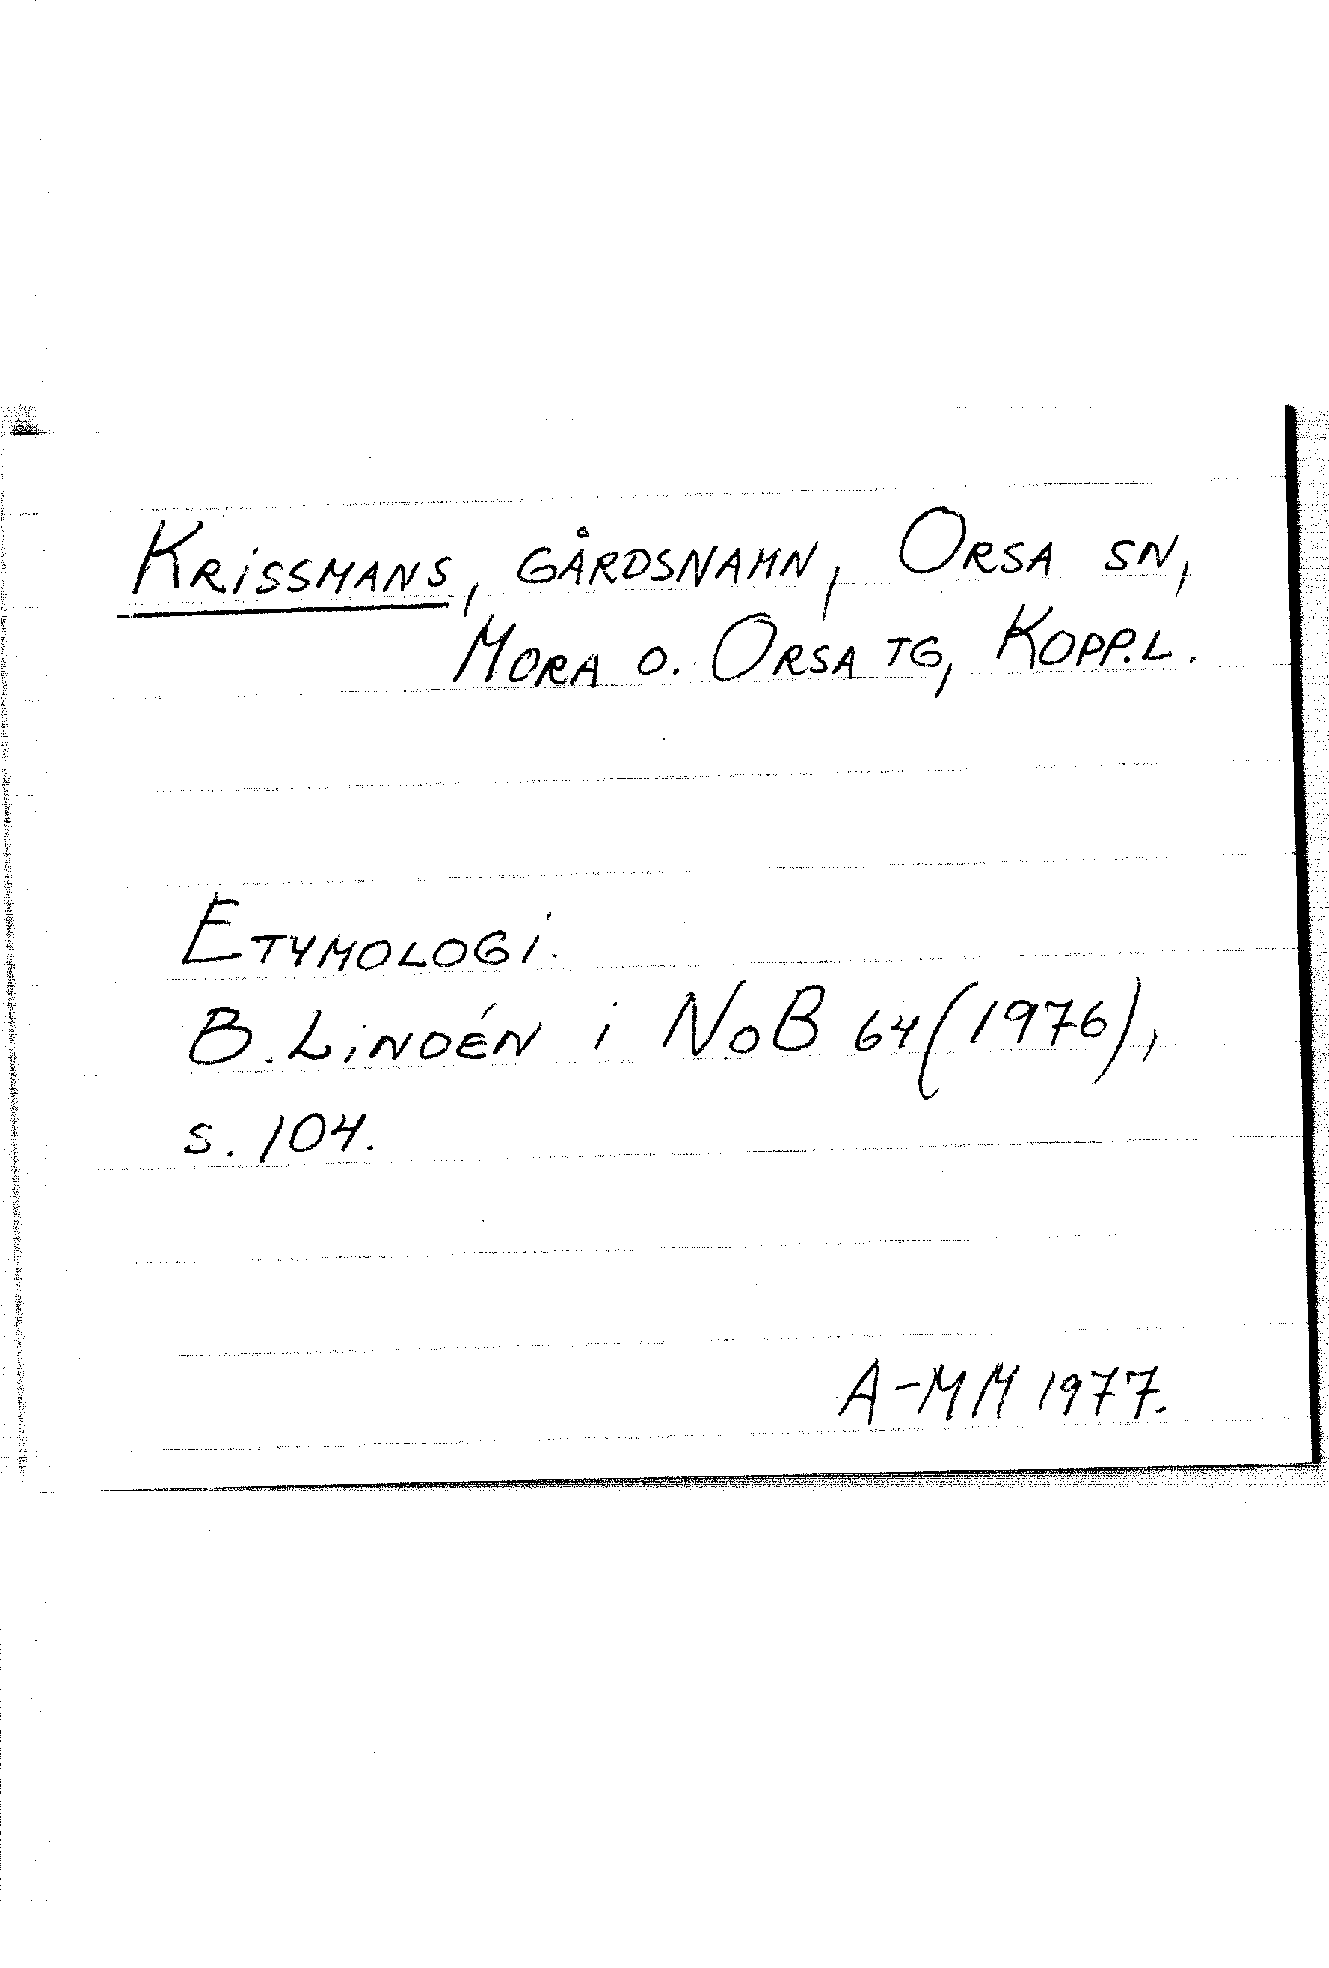 KRISSMANS, GÅRDSNAMN, ORSA SN,
MORA O. ORSA TG, KOPP.L.
ETYMOLOGI.
B. LINDÉN i NoB 64 (1976),
s. 104.
A-MM 1977.